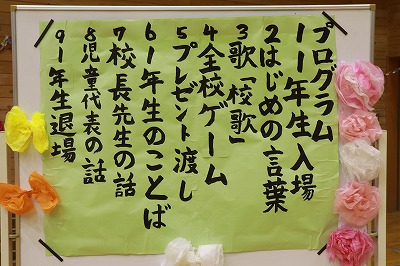 プログラム
1 1年生入場
2 はじめの言葉
3 歌「校歌」
4 全校ゲーム
5 プレゼント渡し
6 1年生のことば
7 校長先生の話
8 児童代表の話
9 1年生退場